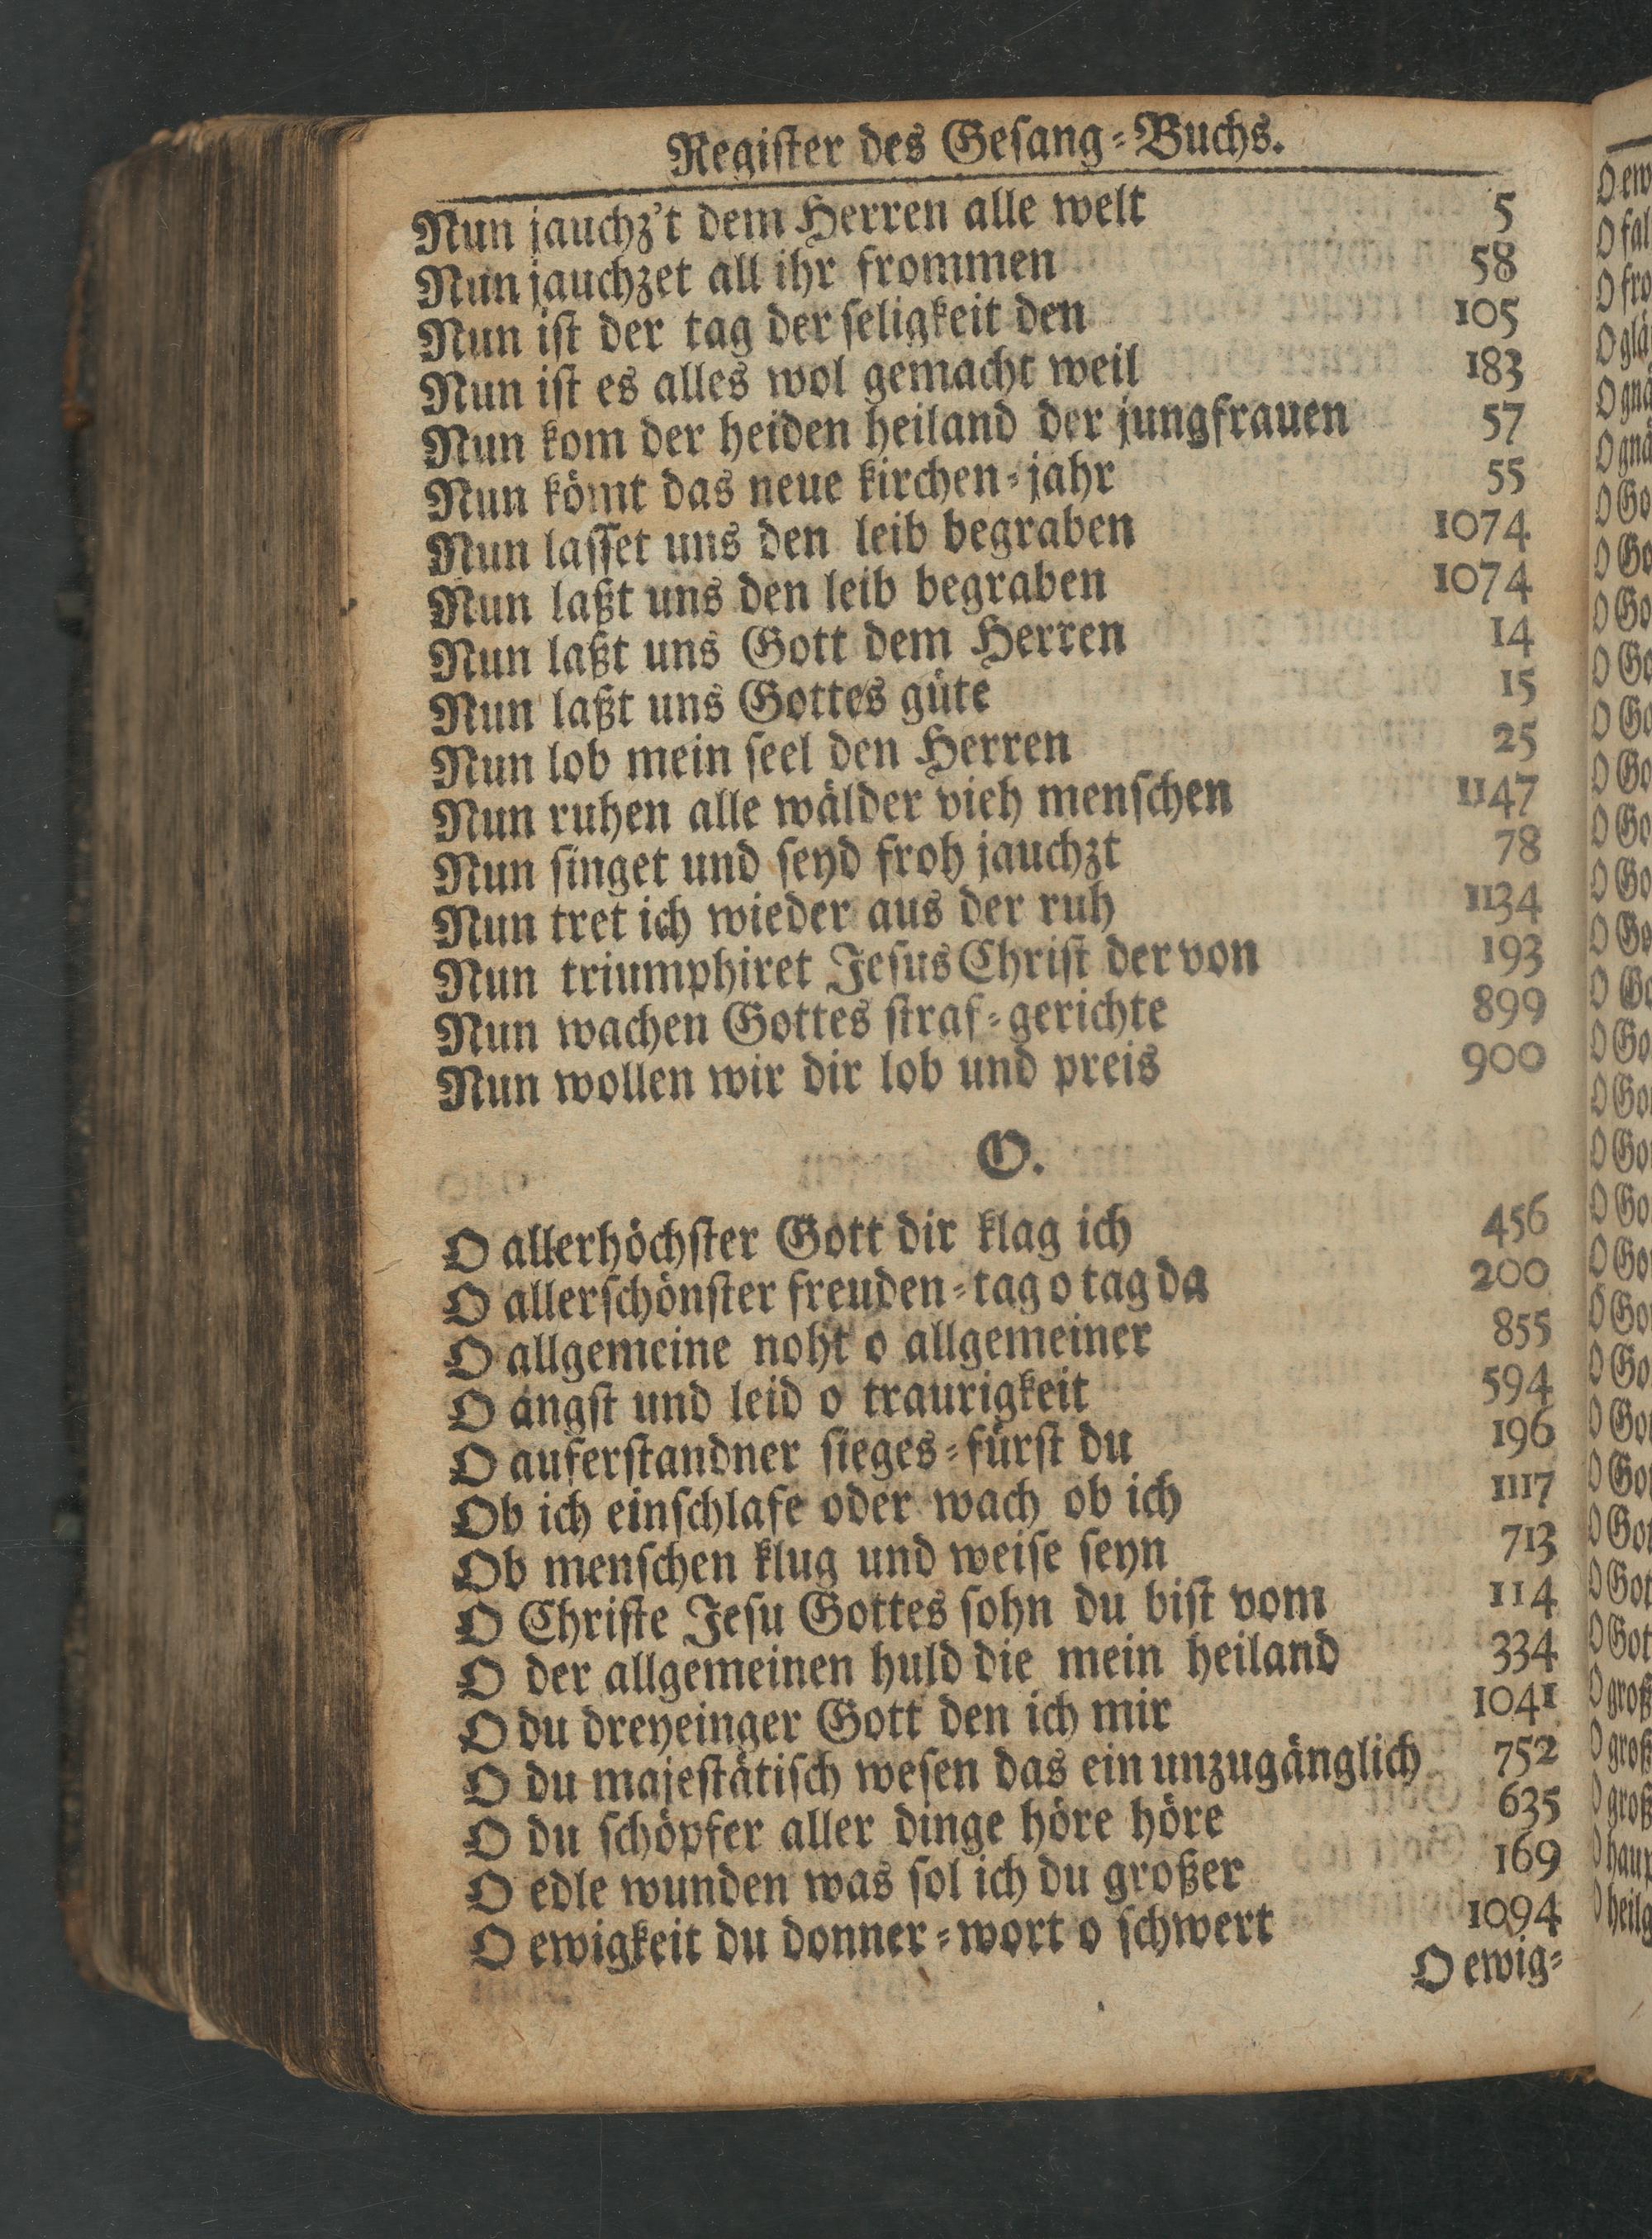 Regiſter des Geſang-Buchs.
Nun jauchz't dem Herren alle welt 5
Nun jauchzet all ihr frommen 58
Nun iſt der tag der ſeligkeit den 105
Nun iſt es alles wol gemacht weil 183
Nun kom der heiden heiland der jungfrauen 57
Nun kömt das neue kirchen-jahr 55
Nun laſſet uns den leib begraben 1074
Nun laßt uns den leib begraben 1074
Nun laßt uns Gott dem Herren 14
Nun laßt uns Gottes güte 15
Nun lob mein ſeel den Herren 25
Nun ruhen alle wälder vieh menſchen 1147
Nun ſinget und ſeyd froh jauchzt 78
Nun tret ich wieder aus der ruh 1134
Nun triumphiret Jeſus Chriſt der von 193
Nun wachen Gottes ſtraf-gerichte 899
Nun wollen wir dir lob und preis 900
O.
O allerhöchſter Gott dir klag ich 456
O allerſchönſter freuden-tag o tag da 200
O allgemeine noht o allgemeiner 855
O angſt und leid o traurigkeit 594
O auferſtandner ſieges-fürſt du 196
Ob ich einſchlafe oder wach ob ich 1117
Ob menſchen klug und weiſe ſeyn 713
O Chriſte Jeſu Gottes ſohn du biſt vom 114
O der allgemeinen huld die mein heiland 334
O du dreyeinger Gott den ich mir 1041
O du majeſtätiſch weſen das ein unzugänglich 752
O du ſchöpfer aller dinge höre höre 635
O edle wunden was ſol ich du großer 169
O ewigkeit du donner-wort o ſchwert 1094
O ewig-